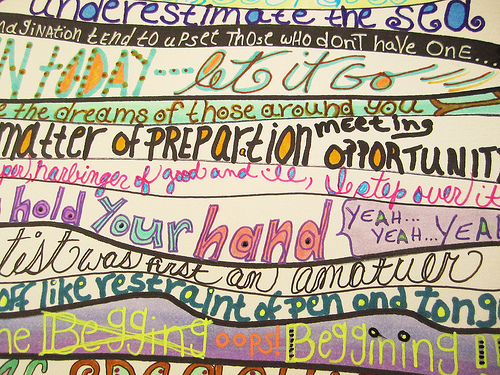 underestimate the sed
magination tend to upset those who don't have one...
TODAY... let it go
the dreams of those around you
matter of PREPARTION meeting OPPORTUNIT
per, harbinger of good and ill, I step over it
hold your hand YEAH... YEAH... YEA
tist was first an amatuer
off like restraint of pen and tong
ne Begging oops! Beggining